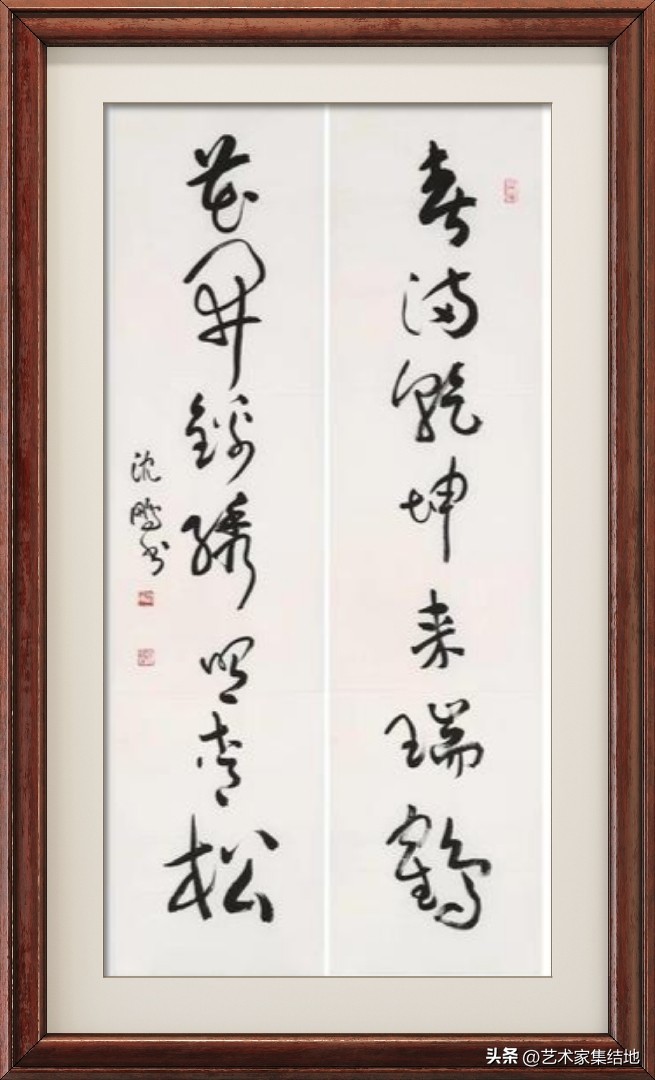 春满乾坤来瑞鹤
花開錦繡照青松
沈鹏书
头条 @艺术家集结地